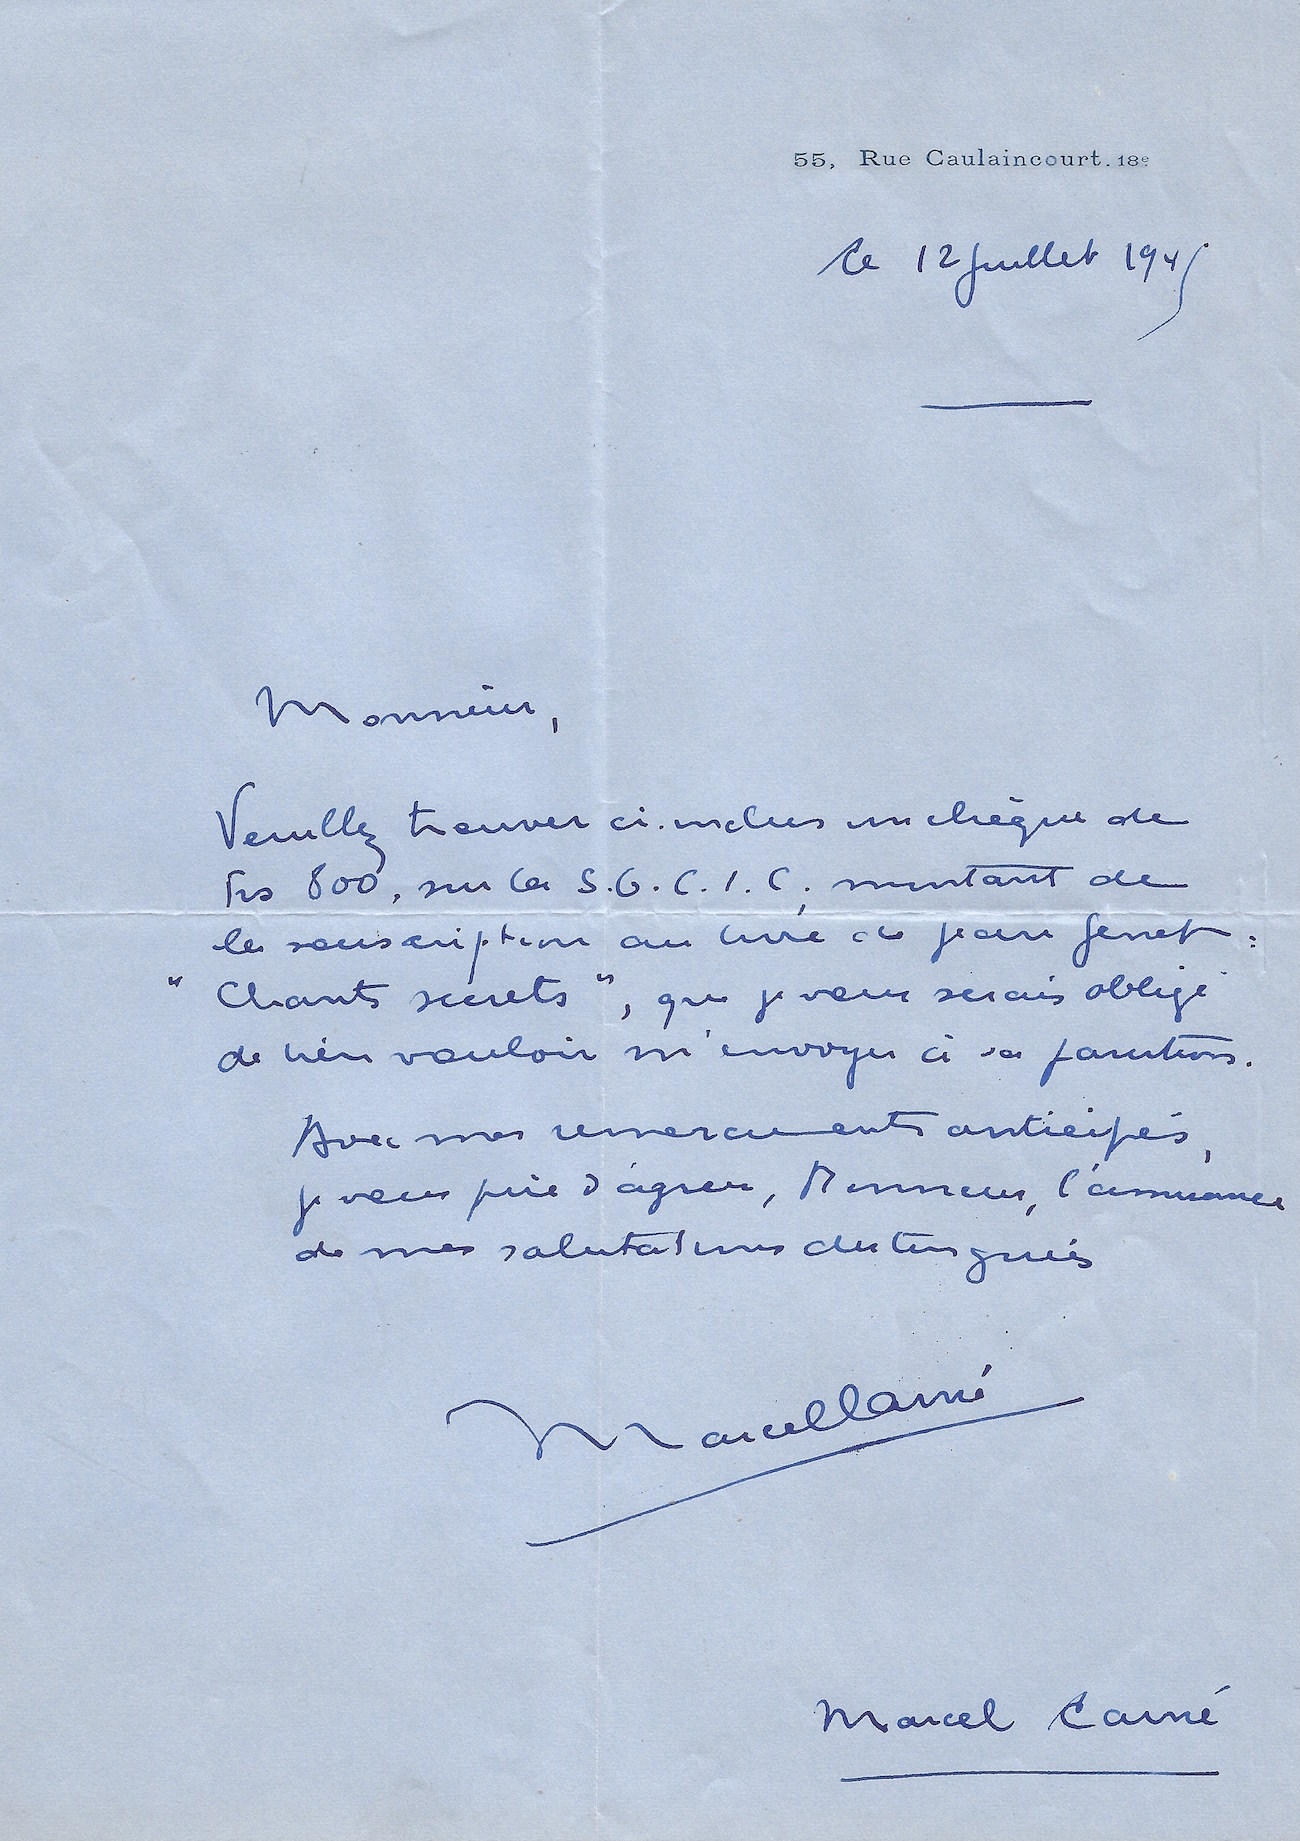 55, Rue Caulaincourt. 18e
le 12 juillet 1945
Monsieur,
Veuillez trouver ci-inclus un chèque de
Frs 800, sur la S.G.C.I.C, montant de
la souscription au livre de Jean Genet :
" Chants secrets ", que je vous serais obligé
de bien vouloir m'envoyer à sa parution.
Avec mes remerciements anticipés,
je vous prie d'agréer, Monsieur, l'assurance
de mes salutations distinguées
Marcel Carné
Marcel Carné